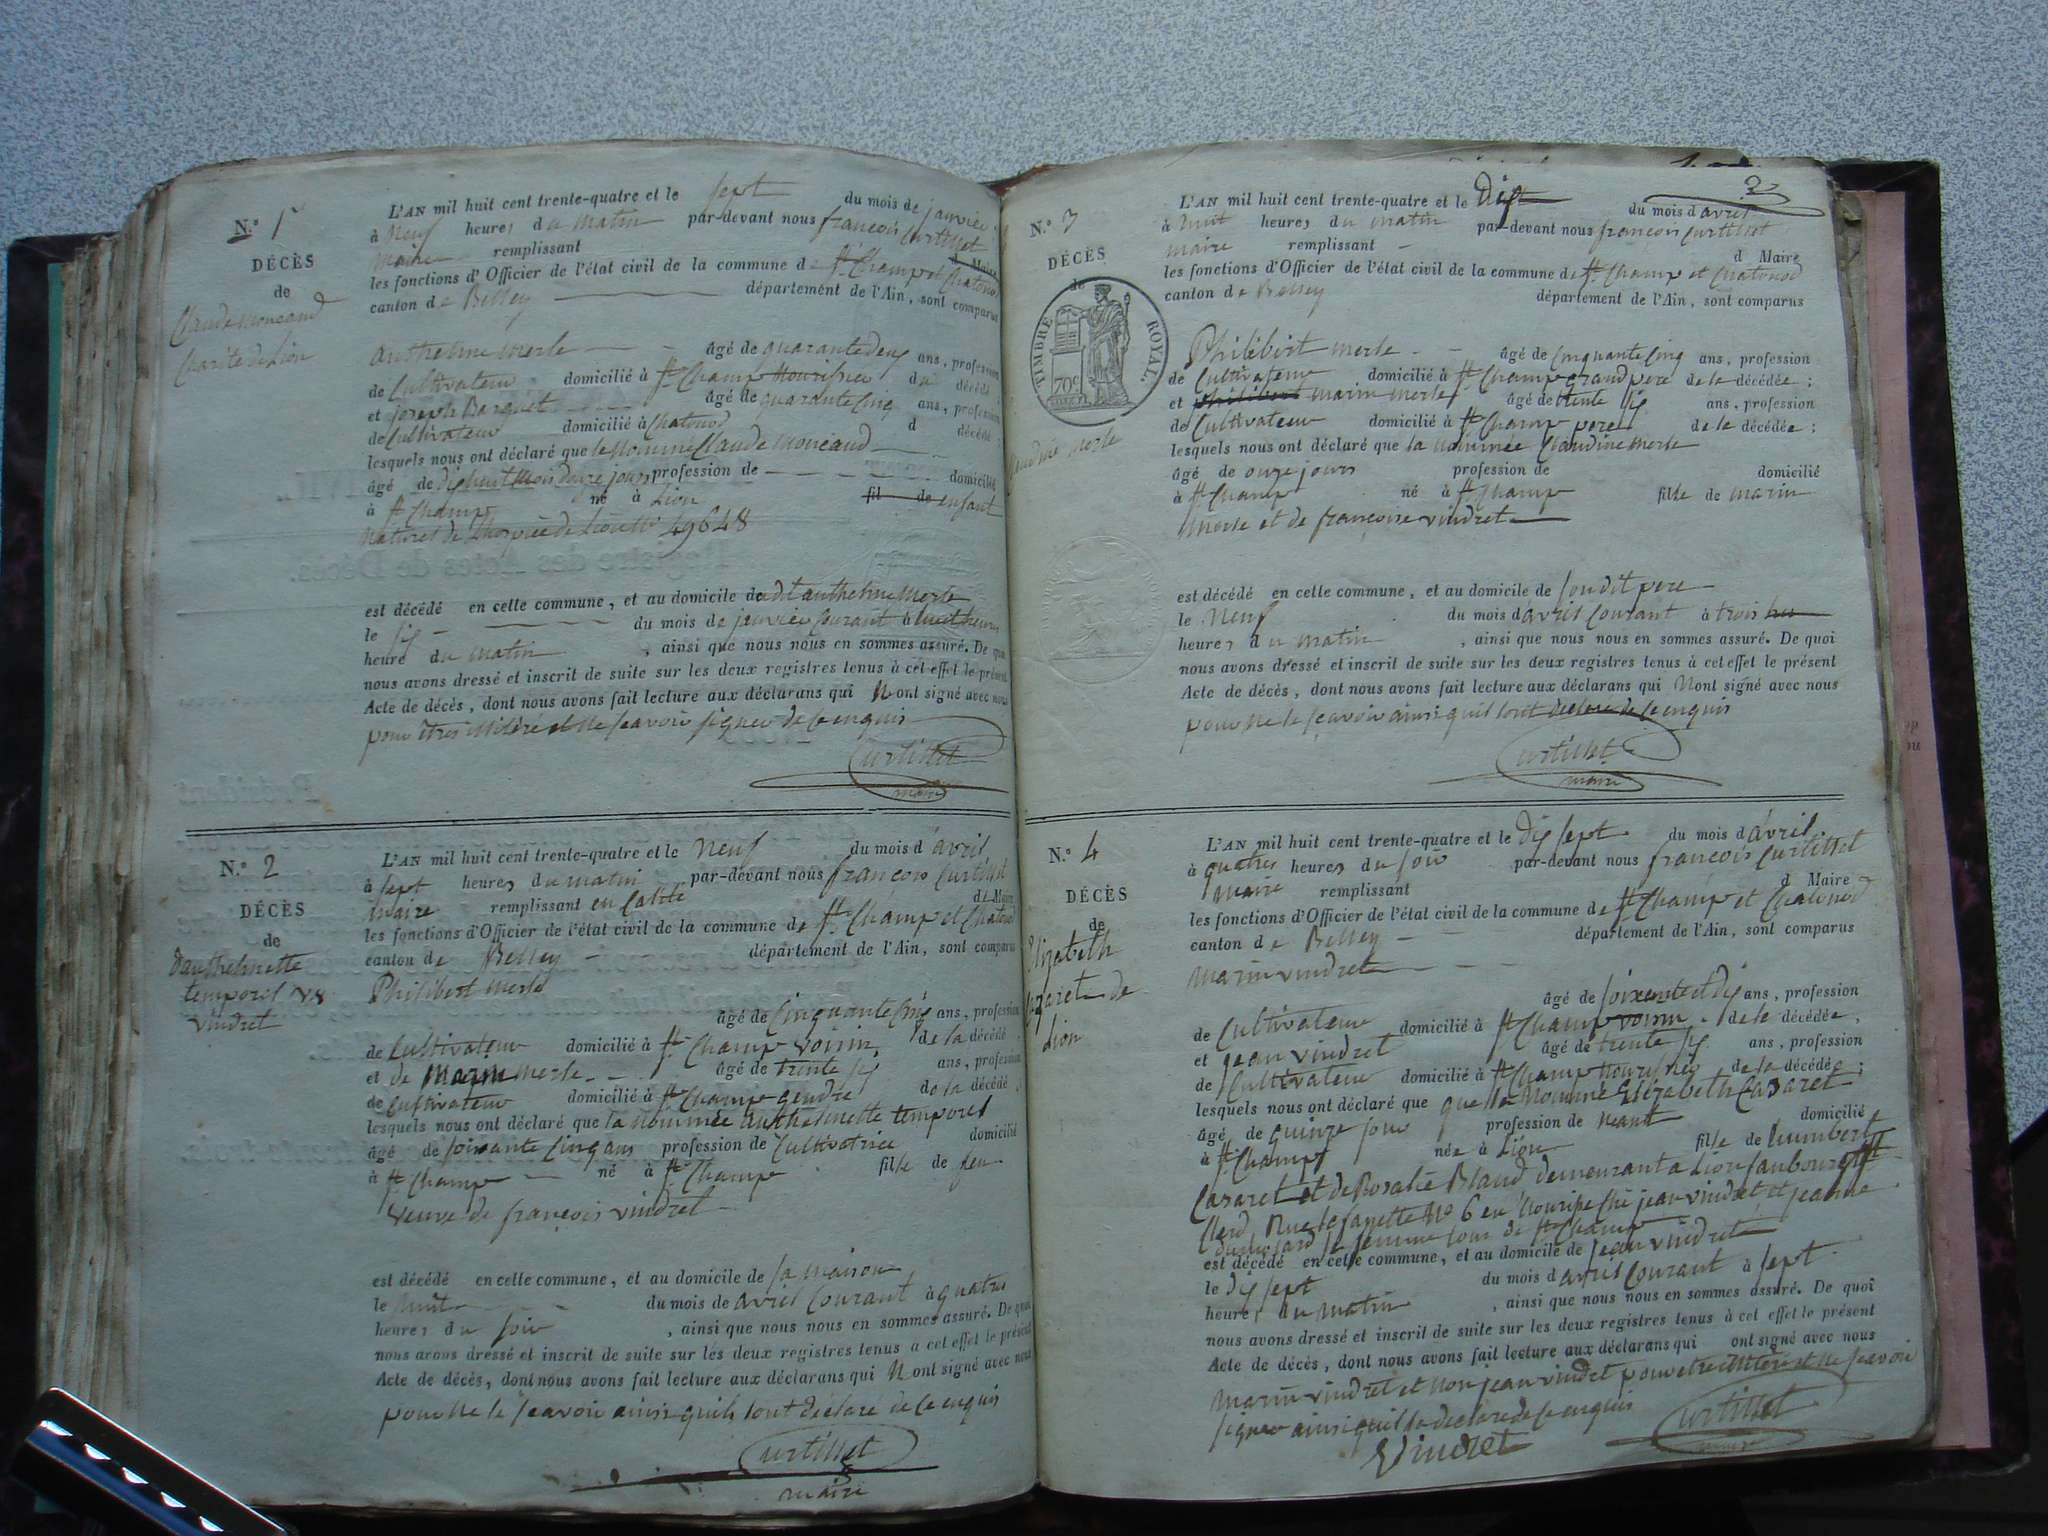 N.º 1
DÉCÈS
de
Claude Monceaud
Charité de Lion
L'AN mil huit cent trente-quatre et le sept du mois de janvier
à Neuf heures du matin par-devant nous françois Curtillet
maire remplissant d Maire
les fonctions d'Officier de l'état civil de la commune de st Champ et Chatonod
canton de Belley département de l'Ain, sont comparus
anthelme merle âgé de quarante deux ans, profession
de Cultivateur domicilié à st Champ Nourisier du décédé ;
et joseph Barquet âgé de quarante cinq ans, profession
de Cultivateur domicilié à Chatonod d décédé ;
lesquels nous ont déclaré que le Nommé Claude Monceaud
âgé de dishuit mois douze jours profession de domicilié
à st Champ né à Lion fil de enfant
Naturel de Lhospice de Lion 49648
est décédé en cette commune, et au domicile dudit anthelme Merle
le six du mois de janvier Courant à huit heures
heure du matin , ainsi que nous nous en sommes assuré. De quoi
nous avons dressé et inscrit de suite sur les deux registres tenus à cet effet le présent
Acte de décès, dont nous avons fait lecture aux déclarans qui N ont signé avec nous
pour êtres illitéré et Ne seavoir signer de ce enquis
Curtillet
maire
N.º 2
DÉCÈS
de
d'anthelmette
temporel Vve
vindret
L'AN mil huit cent trente-quatre et le Neuf du mois d'avril
à sept heures du matin par-devant nous françois Curtillet
maire remplissant d Maire
les fonctions d'Officier de l'état civil de la commune de st Champ et Chatonod
canton de Belley département de l'Ain, sont comparus
Philibert merle
âgé de Cinquante Cinq ans, profession
de Cultivateur domicilié à st Champ voisin de la décédé ;
et de Marin merle âgé de trente six ans, profession
de Cultivateur domicilié à st Champ gendre de la décédé ;
lesquels nous ont déclaré que la nommée anthelmette temporel
âgé de soixante Cinq ans profession de Cultivatrice domicilié
à st Champ né à st Champ fille de feu
veuve de françois vindret
est décédé en cette commune, et au domicile de sa maison
le huit du mois de avril Courant à quatres
heures du soir , ainsi que nous nous en sommes assuré. De quoi
nous avons dressé et inscrit de suite sur les deux registres tenus a cet effet le présent
Acte de décès, dont nous avons fait lecture aux déclarans qui N ont signé avec nous
pour Ne le seavoir ainsi quils l'ont déclaré de ce enquis
Curtillet
maire
2
N.º 3
DÉCÈS
de
TIMBRE ROYAL.
70 c
Claudine Merle
L'AN mil huit cent trente-quatre et le Dix du mois d'avril
à huit heures du matin par-devant nous françois Curtillet
maire remplissant d Maire
les fonctions d'Officier de l'état civil de la commune de st Champ et Chatonod
canton de Belley département de l'Ain, sont comparus
Philibert merle âgé de Cinquante Cinq ans, profession
de Cultivateur domicilié à st Champ grand pere de la décédée ;
et philibert marin merle âgé de trente six ans, profession
de Cultivateur domicilié à st Champ pere de la décédée ;
lesquels nous ont déclaré que la Nommée Claudine Merle
âgé de onze jours profession de domicilié
à st Champ né à st Champ fille de marin
Merle et de françoise vindret
est décédé en cette commune, et au domicile de son dit pere
le Neuf du mois d'avril Courant à trois heu
heures du matin , ainsi que nous nous en sommes assuré. De quoi
nous avons dressé et inscrit de suite sur les deux registres tenus à cet effet le présent
Acte de décès, dont nous avons fait lecture aux déclarans qui Nont signé avec nous
pour Ne le seavoir ainsi quils l'ont déclaré de ce enquis
Curtillet
maire
N.º 4
DÉCÈS
de
Elizabeth
Cazaret de
Lion
L'AN mil huit cent trente-quatre et le Dix sept du mois d'avril
à quatres heures du soir par-devant nous françois Curtillet
maire remplissant d Maire
les fonctions d'Officier de l'état civil de la commune de st Champ et Chatonod
canton de Belley département de l'Ain, sont comparus
Marin vindret
âgé de soixente et dix ans, profession
de Cultivateur domicilié à st Champ voisin de la décédée,
et jean vindret âgé de trente six ans, profession
de Cultivateur domicilié à st Champ Nourisier de la décédée ;
lesquels nous ont déclaré que que la Nommée Elizabeth Cazaret
âgé de quinze jour profession de Neant domicilié
à st Champ née à Lion fille de humbert
Cazaret et de Rosalie Bland demeurant a Lion faubourg
Rue Lafayette No 6 en Nourise ché jean vindret et jeanne
sa femme tous de st Champ
est décédé en cette commune, et au domicile de jean vindret
le dix sept du mois d'avril Courant à sept
heures du matin , ainsi que nous nous en sommes assuré. De quoi
nous avons dressé et inscrit de suite sur les deux registres tenus à cet effet le présent
Acte de décès, dont nous avons fait lecture aux déclarans qui ont signé avec nous
Marin vindret et Non jean vindret pour etre illitéré et Ne seavoir
signer ainsi quil la declaré de ce enquis
Vindret
Curtillet
maire